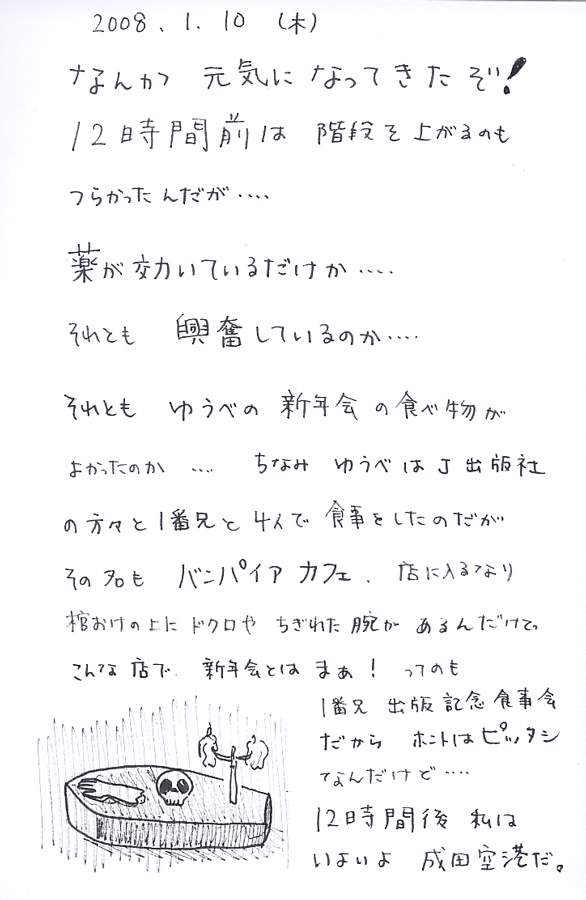 2008.1.10 (木)
なんか 元気に なってきたぞ!
12時間前は 階段を 上がるのも
つらかったんだが‥‥
薬が効いているだけか‥‥
それとも 興奮しているのか‥‥
それとも ゆうべの 新年会の食べ物が
よかったのか ‥‥ ちなみ ゆうべは J出版社
の方々と1番兄と4人で 食事をしたのだが
その名も バンパイア カフェ、店に入るなり
棺おけの上に ドクロや ちぎれた腕が あるんだけどっ
こんな店で、新年会とは まぁ! ってのも
1番兄 出版記念食事会
だから ホントは ピッタシ
なんだけど‥‥
12時間後 私は
いよいよ 成田空港だ。